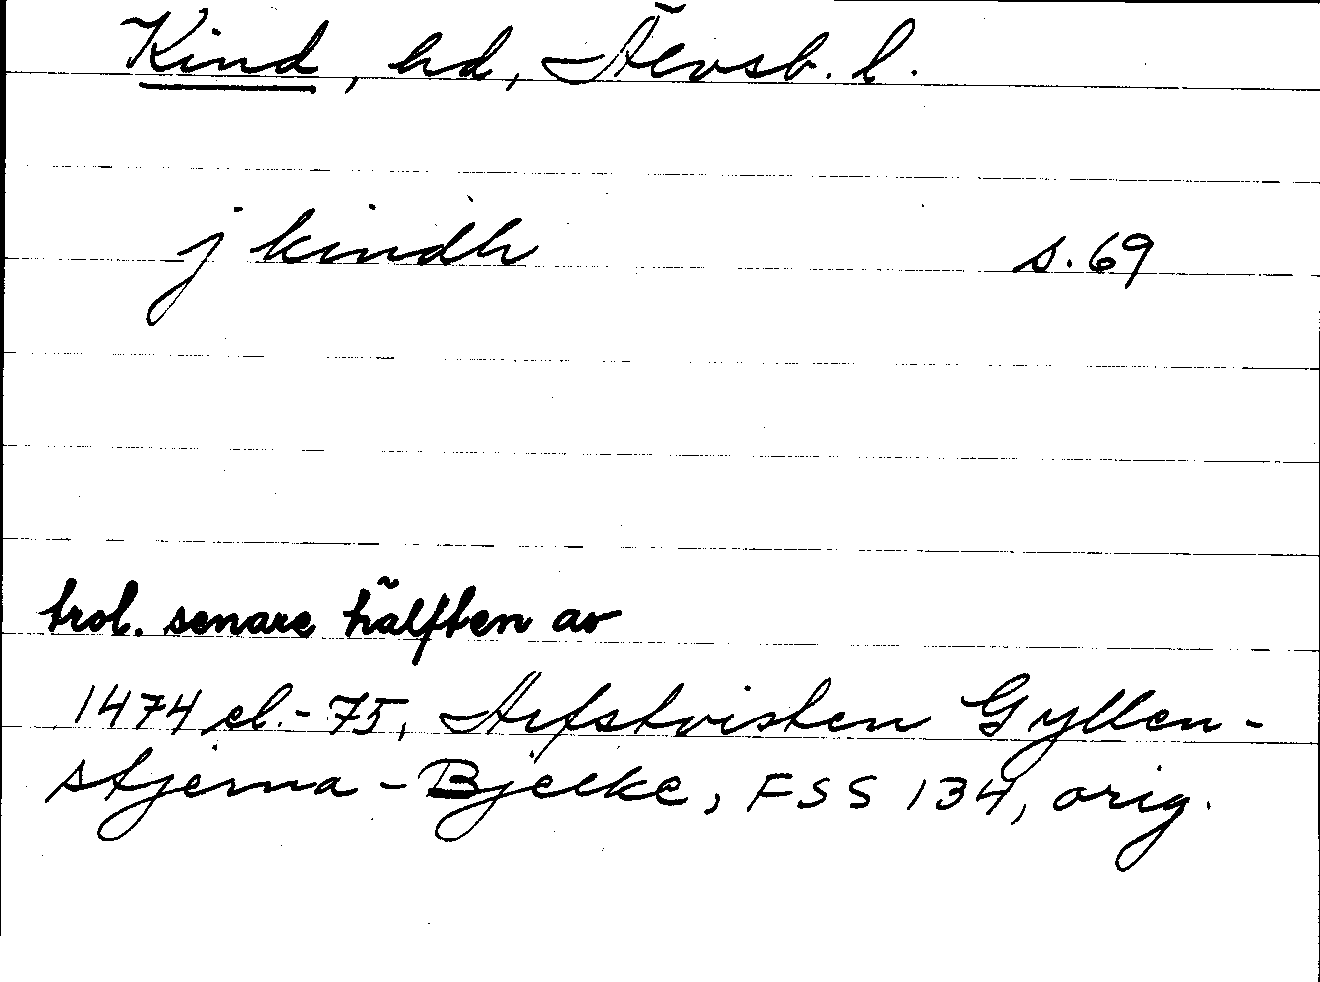 Kind, hd, Älvsb. l.
j kindh s. 69
trol. senare hälften av
1474 el. -75, Arfstvisten Gyllen-
stjerna - Bjelke, FSS 134, orig.